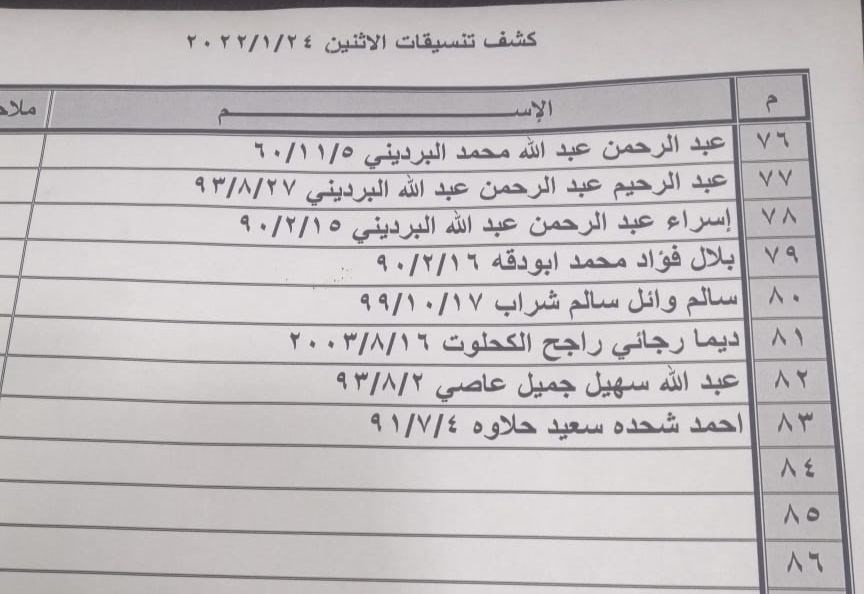 كشف تنسيقات الاثنين ٢٠٢٢/١/٢٤
م الإســـــــــــــم
٧٦ عبد الرحمن عبد الله محمد البرديني ٦٠/١١/٥
٧٧ عبد الرحيم عبد الرحمن عبد الله البرديني ٩٣/٨/٢٧
٧٨ إسراء عبد الرحمن عبد الله البرديني ٩٠/٢/١٥
٧٩ بلال فؤاد محمد ابودقه ٩٠/٢/١٦
٨٠ سالم وائل سالم شراب ٩٩/١٠/١٧
٨١ ديما رجائي راجح الكحلوت ٢٠٠٣/٨/١٦
٨٢ عبد الله سهيل جميل عاصي ٩٣/٨/٢
٨٣ احمد شحده سعيد حلاوه ٩١/٧/٤
٨٤
٨٥
٨٦